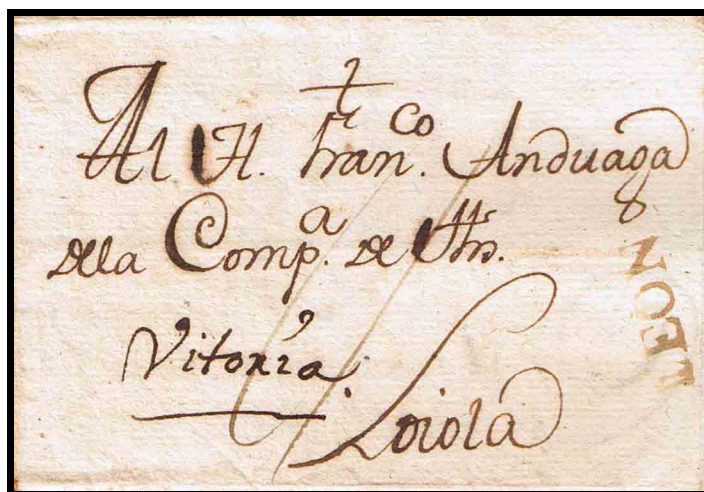 Al H. Fran.co Anduaga
dela Comp.a de Jhs.
Vitoria.
Loiola
LEON